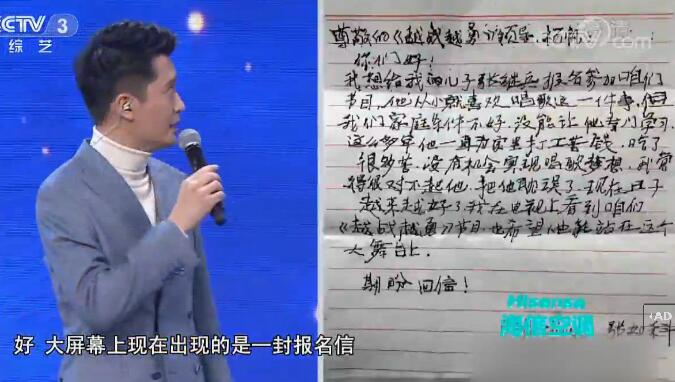 CCTV 3
综艺
尊敬的《越战越勇》领导
你们好！
我想给我的儿子张继兵报名参加咱们
节目，他从小就喜欢唱歌这一件事，但
我们家庭条件不好，没能让他专门学习
这么多年他一直打工钱，吃了
很多苦，没有机会实现唱歌梦想，我觉
得很对不起他，把他耽误了，现在日子
越来越好了，我在电视上看到咱们
《越战越勇》节目，也希望他能站在这个
大舞台上。
期盼回信！
Hisense
海信空调
AD
好 大屏幕上现在出现的是一封报名信